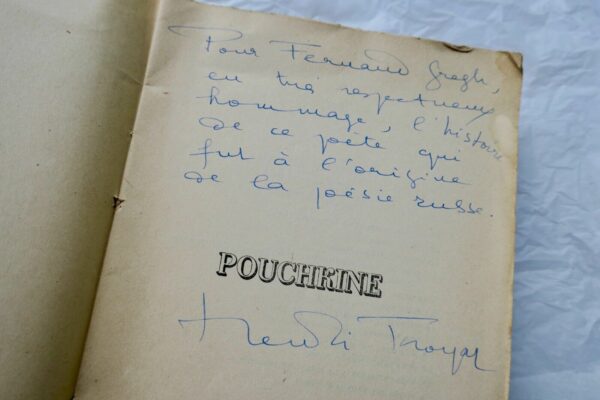 Pour Fernand Gregh,
en très respectueux
hommage, l'histoire
de ce poète qui
fut à l'origine
de la poésie russe.
POUCHKINE
Henri Troyat